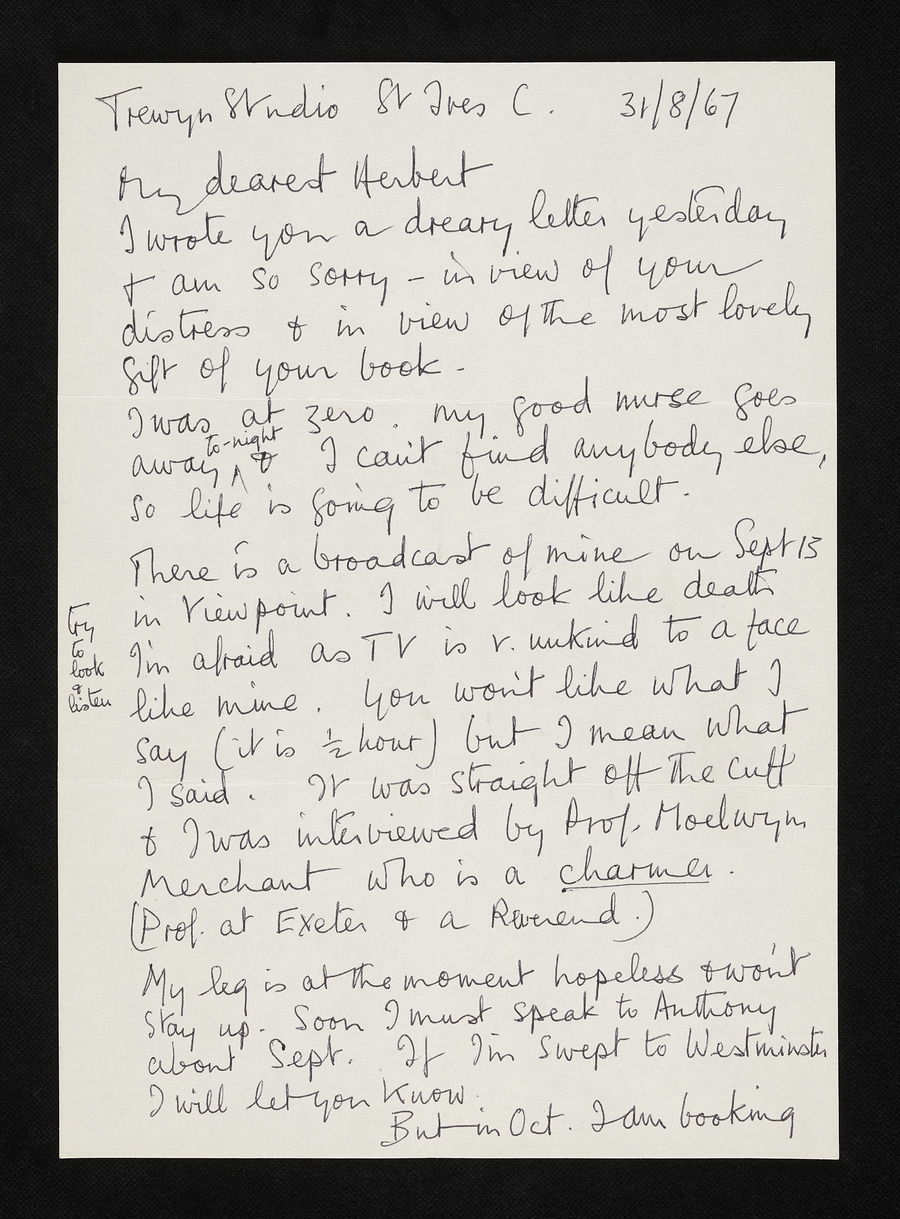 Trewyn Studio St Ives C. 31/8/67
My dearest Herbert
I wrote you a dreary letter yesterday
& am so sorry – in view of your
distress & in view of the most lovely
gift of your book -
I was at zero. my good nurse goes
away to-night & I can't find anybody else,
so life is going to be difficult.
There is a broadcast of mine on Sept 13
in Viewpoint. I will look like death
I'm afraid as TV is v. unkind to a face
like mine. You won't like what I
say (it is ½ hour) but I mean what
I said. It was straight off the cuff
& I was interviewed by Prof. Moelwyn
Merchant who is a charmer.
(Prof. at Exeter & a Reverend.)
try
to
look
&
listen
My leg is at the moment hopeless & won't
stay up. Soon I must speak to Anthony
about Sept. If I'm swept to Westminster
I will let you know.
But in Oct. I am booking